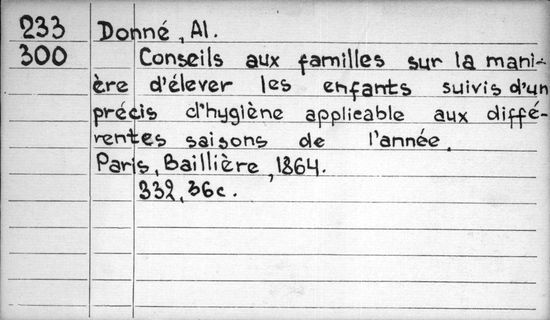 233 Donné, Al.
300 Conseils aux familles sur la mani-
ère d'élever les enfants suivis d'un
précis d'hygiène applicable aux diffé-
rentes saisons de l'année.
Paris, Baillière, 1864.
332, 36c.